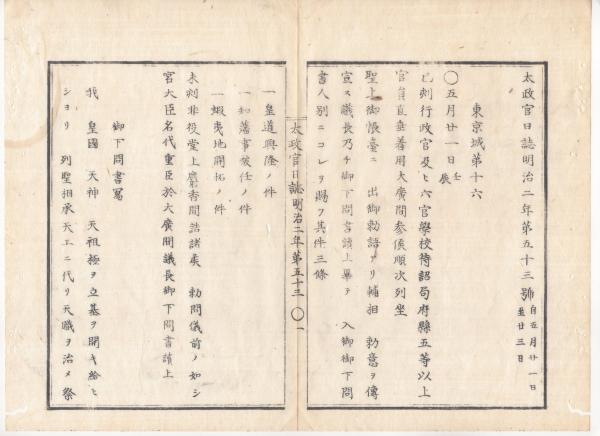 太政官日誌明治二年第五十三號 自五月廿一日至廿三日
東京城第十六
〇五月廿一日壬辰
巳刻行政官及ヒ六官學校待詔局府縣五等以上
官員直垂着用大廣間参候順次列坐
聖上御帳臺ニ 出御勅語アリ輔相 勅意ヲ傳
宣ス議長乃チ御下問書讀上畢テ 入御御下問
書人別ニコレヲ賜フ其件三條
太政官日誌明治二年第五十三 〇一
一皇道興隆ノ件
一知藩事被任ノ件
一蝦夷地開拓ノ件
未刻非役堂上麝香間詰諸矦 勅問儀前ノ如シ
宮大臣名代重臣於大廣間議長御下問書讀上
御下問書冩
我 皇國 天神 天祖極ヲ立基ヲ開キ給ヒ
シヨリ 列聖相承天工ニ代リ天職ヲ治メ祭